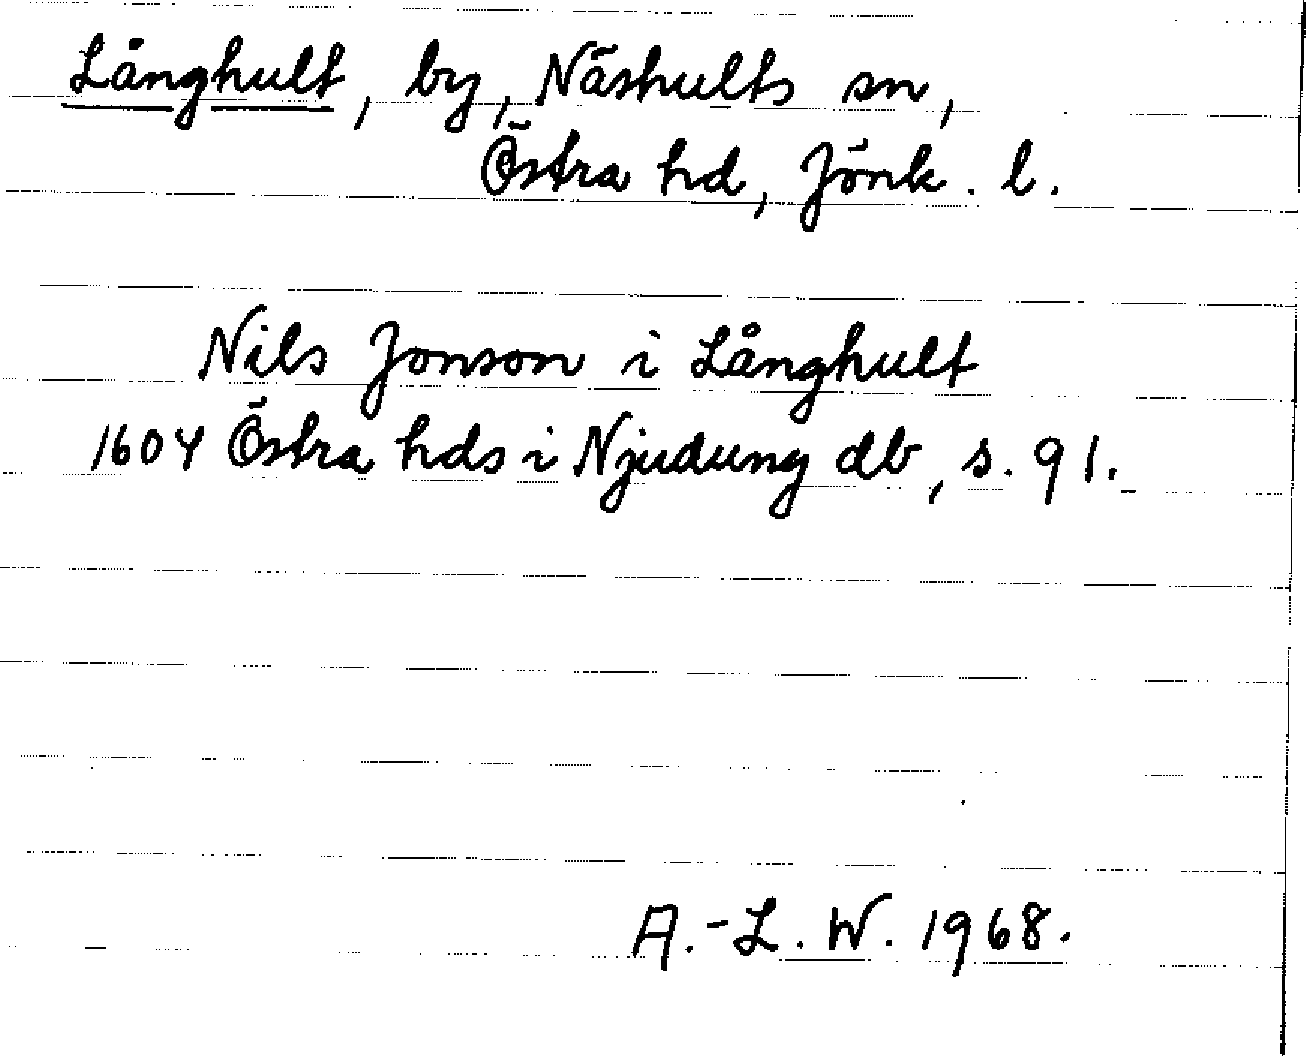 Långhult, by, Näshults sn,
Östra hd, Jönk. l.
Nils Jonson i Långhult
1604 Östra hds i Njudung db, s. 91.
A.-L. W. 1968.